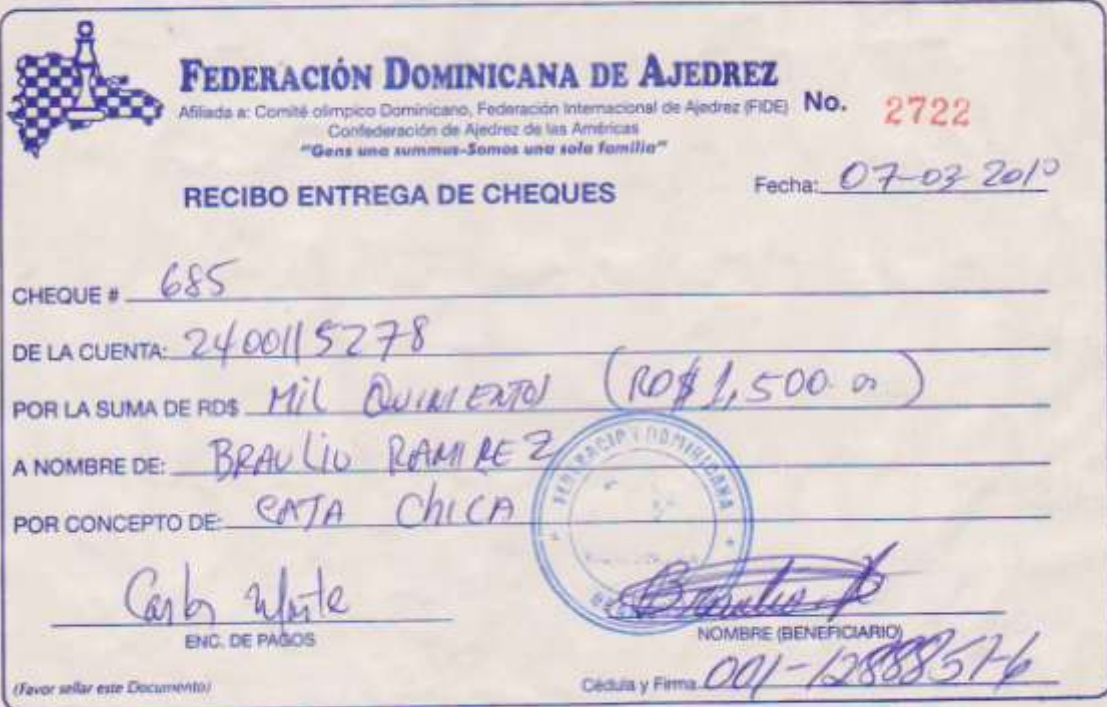 FEDERACIÓN DOMINICANA DE AJEDREZ
Afiliada a: Comité olímpico Dominicano, Federación Internacional de Ajedrez (FIDE)
Confederación de Ajedrez de las Américas
"Gens una summus-Somos una sola familia"
No. 2722
RECIBO ENTREGA DE CHEQUES
Fecha: 07-03 2010
CHEQUE # 685
DE LA CUENTA: 2400115278
POR LA SUMA DE RD$ MIL QUINIENTOS (RD$1,500.00)
A NOMBRE DE: BRAULIO RAMIREZ
POR CONCEPTO DE: CAJA CHICA
FEDERACION DOMINICANA
Carlos
ENC. DE PAGOS
Braulio R
NOMBRE (BENEFICIARIO)
(Favor sellar este Documento)
Cédula y Firma 001-1288851-6